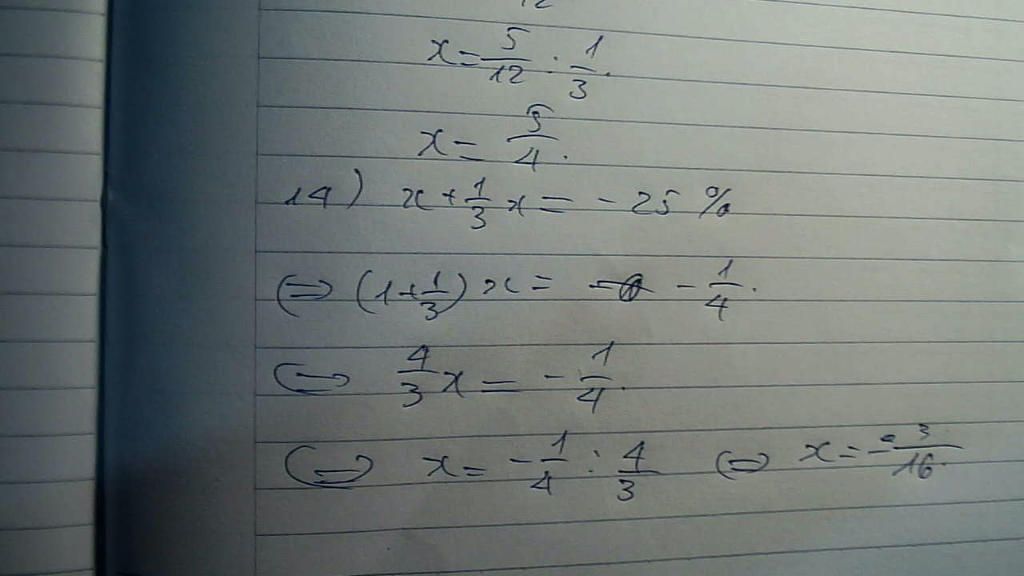 x = 5/12 : 1/3.
x = 5/4.
14) x + 1/3 x = - 25 %
⇔ (1 + 1/3) x = - 1/4.
⇔ 4/3 x = - 1/4.
⇔ x = - 1/4 : 4/3 ⇔ x = - 3/16.